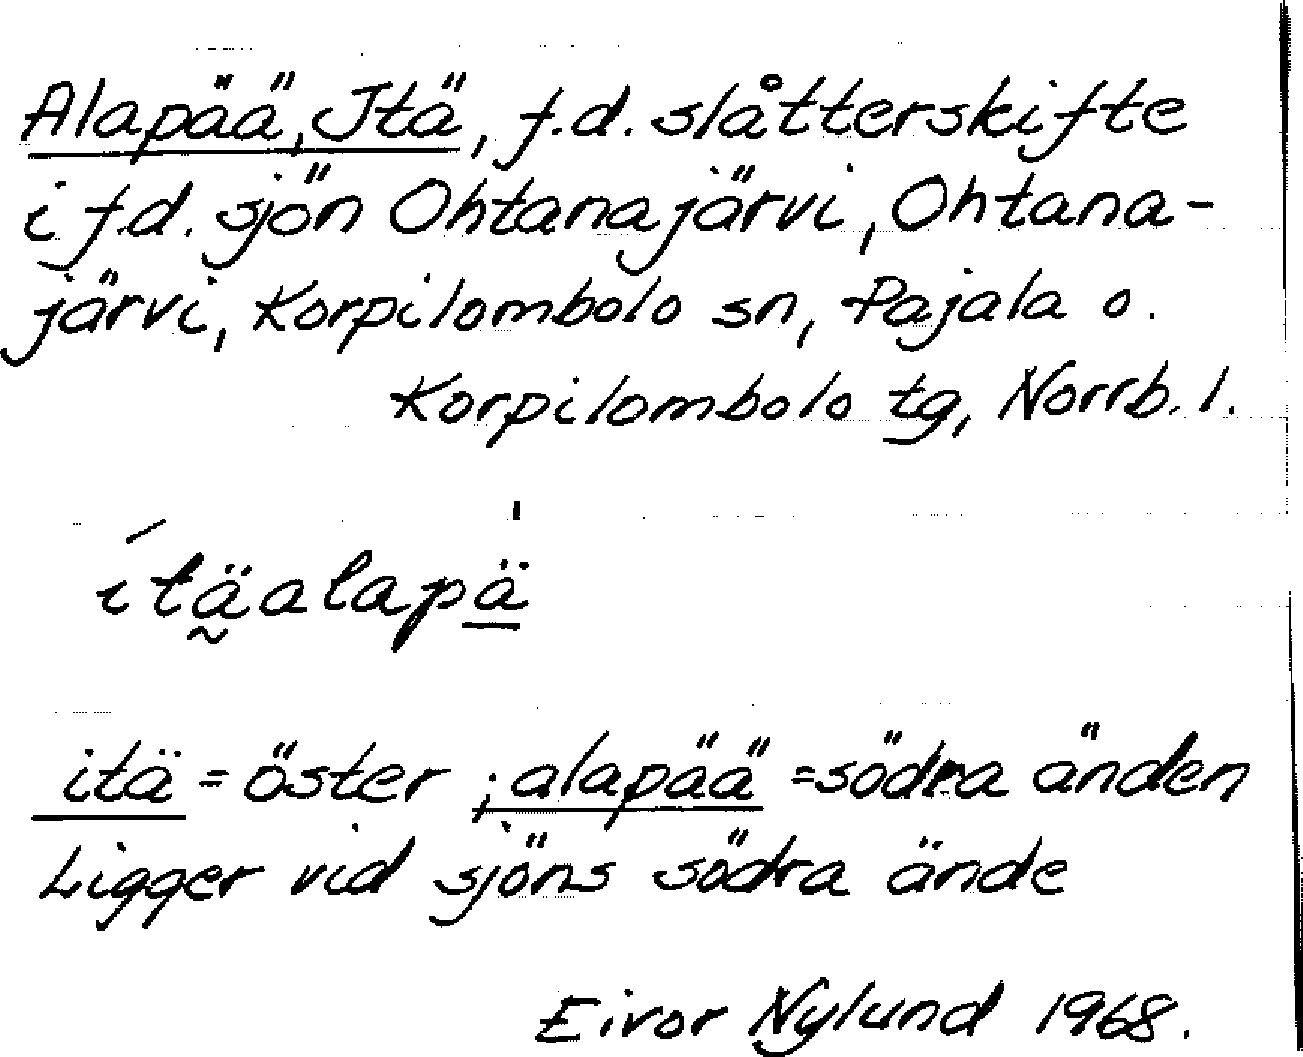 Alapää, Itä, f.d. slåtterskifte
i f.d. sjön Ohtanajärvi, Ohtana-
järvi, Korpilombolo sn, Pajala o.
Korpilombolo tg, Norrb. l.
ítä̰alapä̱
itä = öster ; alapää = södra änden
Ligger vid sjöns södra ände
Eivor Nylund 1968.